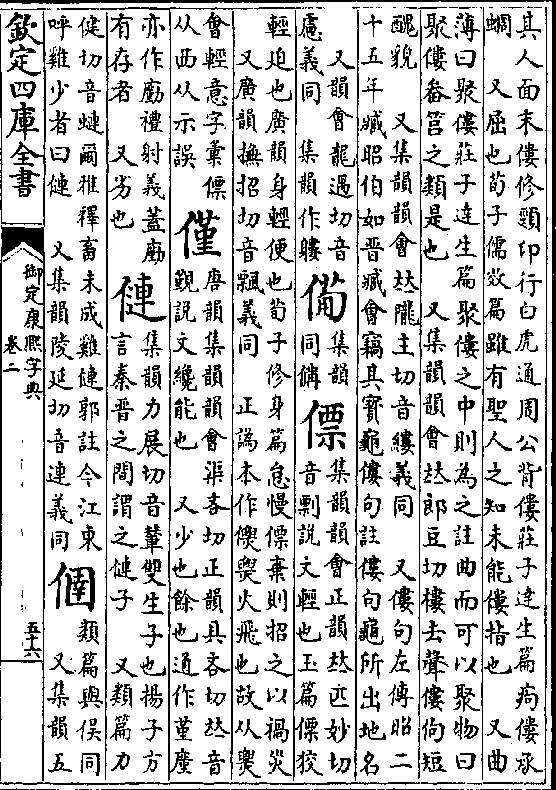 其人面末僂修頸卬行白虎通周公背僂莊子達生篇痀僂承
蜩　又屈也荀子儒效篇雖有聖人之知未能僂指也　又曲
薄曰聚僂莊子達生篇聚僂之中則為之註曲而可以聚物曰
聚僂畚筥之類是也　又集韻韻會𠀤郎豆切樓去聲僂佝短
醜貌　又集韻韻會𠀤隴主切音縷義同　又僂句左傳昭二
十五年臧昭伯如晉臧會竊其寶龜僂句註僂句龜所出地名
又韻會龍遇切音
慮義同　集韻作軁
集韻
同
僄
集韻韻會正韻𠀤匹妙切
音剽說文輕也玉篇僄狡
輕迫也廣韻身輕便也荀子修身篇怠慢僄棄則招之以禍災
又廣韻撫招切音飄義同　正譌本作㷠火飛也故从㷠
會輕意字彙僄
从西从示誤
僅
唐韻集韻韻會渠吝切正韻具吝切𠀤音
覲說文纔能也　又少也餘也通作堇廑
亦作㔷禮射義蓋㔷
有存者　又劣也
僆
集韻力展切音輦雙生子也揚子方
言秦晉之間謂之僆子　又類篇力
健切音爾雅釋畜未成雞僆郭註今江東
呼雞少者曰僆　又集韻陵延切音連義同
類篇與俁同
又集韻五
欽定四庫全書
御定康熙字典
卷二
五十六